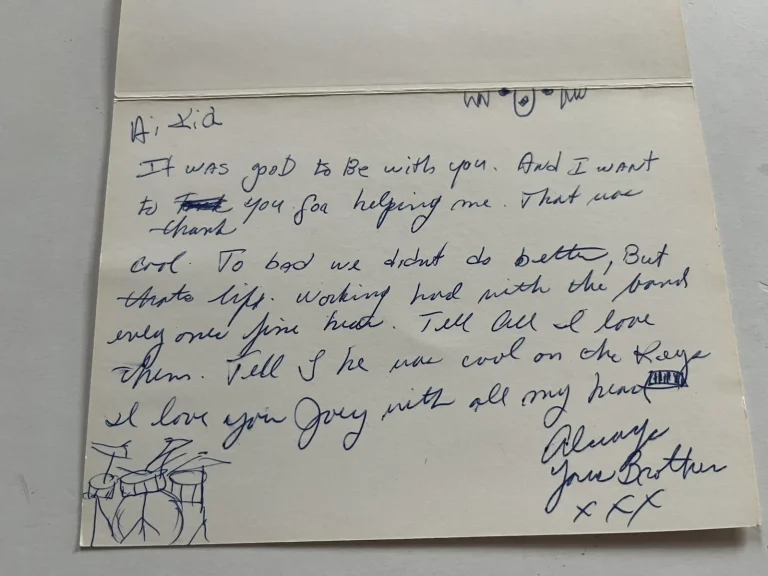 Hi Kid
It was good to Be with you. And I want
to thank you for helping me. That was
cool. To bad we didnt do better, But
thats life. Working hard with the band
every one fine here. Tell All I love
them. Tell J he was cool on the Keys
I love you Joey with all my heart
Always
Your Brother
xxx